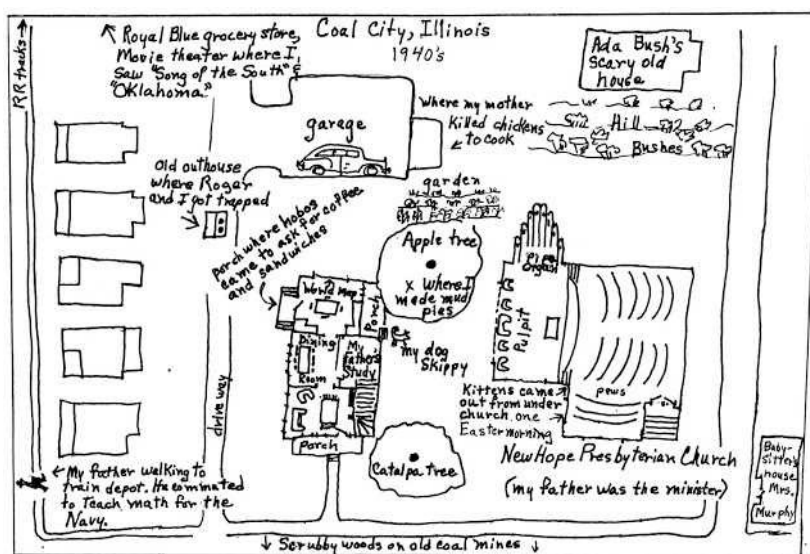 Coal City, Illinois
1940's
RR tracks
Royal Blue grocery store,
Movie theater where I
saw "Song of the South" &
"Oklahoma"
Ada Bush's
scary old
house
garage
where my mother
killed chickens
to cook
Hill
Bushes
Old outhouse
where Roger
and I got trapped
porch where hobos
came to ask for coffee
and sandwiches
garden
Apple tree
x where I
made mud
pies
Pipe
Organ
Pulpit
pews
World Map
Porch
Dining
Room
My
Father's
Study
my dog
Skippy
Porch
drive way
Kittens came
out from under
church one
Easter morning
Catalpa tree
New Hope Presbyterian Church
(my father was the minister)
Baby-
sitter's
house
Mrs.
Murphy
My father walking to
train depot. He commuted
to teach math for the
Navy.
↓ Scrubby woods on old coal mines ↓